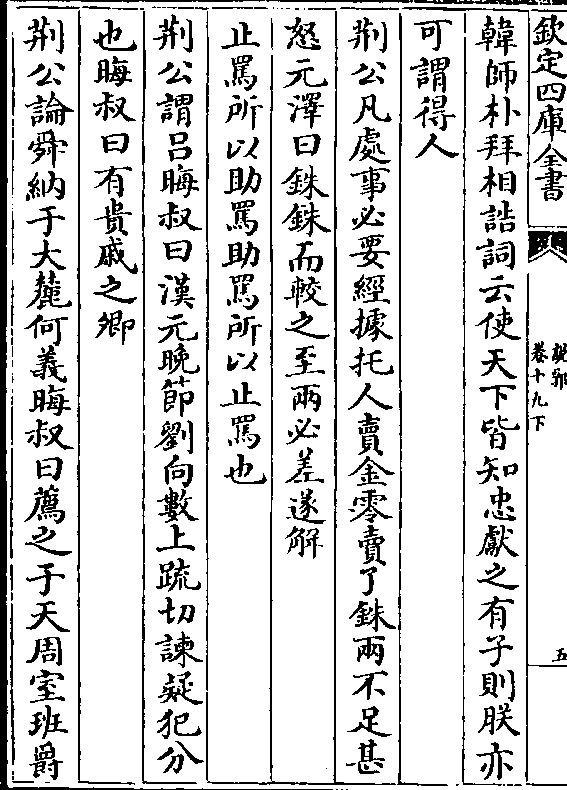 欽定四庫全書
說郛
卷十九下
五
韓師朴拜相誥詞云使天下皆知忠獻之有子則朕亦
可謂得人
荆公凡處事必要經據托人賣金零賣了銖兩不足甚
怒元澤曰銖銖而較之至兩必差遂解
止罵所以助罵助罵所以止罵也
荆公謂吕晦叔曰漢元晚節劉向數上疏切諫疑犯分
也晦叔曰有貴戚之卿
荆公論舜納于大麓何義晦叔曰薦之于天周室班爵